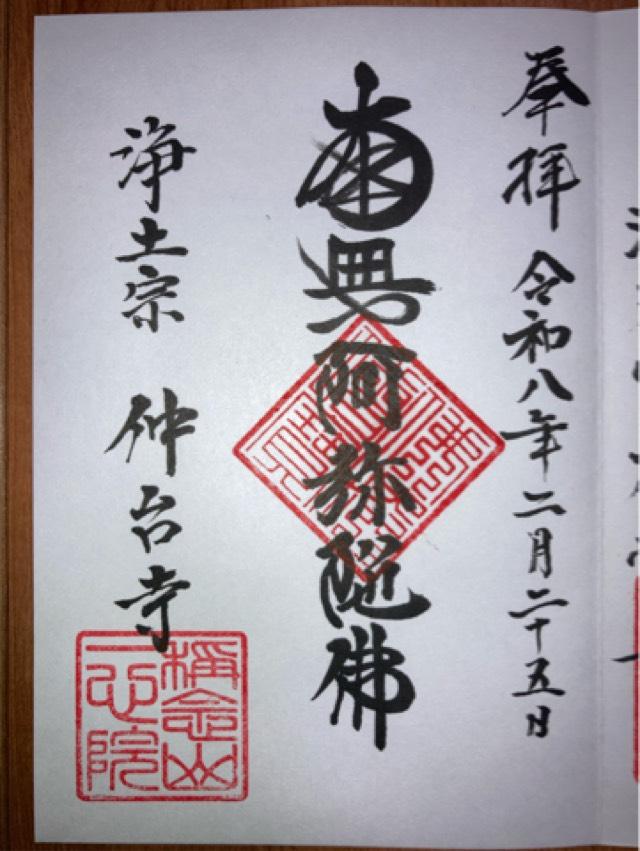 奉拝 令和八年二月二十五日
南無阿弥陀佛
浄土宗 仲台寺
稱念山
一心院